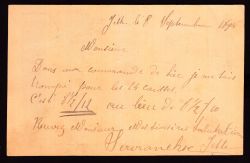 Jette 6 8 Septembre 1890
Monsieur
Dans ma commande de hier je me suis
trompé pour les 24 caisses.
C'est 8½/12 au lieu de 8½/10
Recevez Monsieur mes sincères salutations
Vervranckse Jette